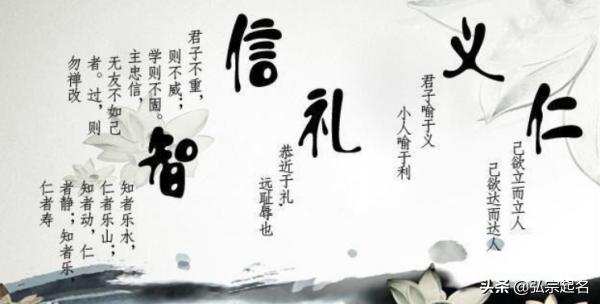 仁
己欲立而立人
己欲达而达人
义
君子喻于义
小人喻于利
礼
恭近于礼,
远耻辱也
信
君子不重，
则不威；
学则不固。
主忠信，
无友不如己
者。过，则
勿禅改
智
知者乐水，
仁者乐山；
知者动，仁
者静；知者乐，
仁者寿
头条 @弘宗起名